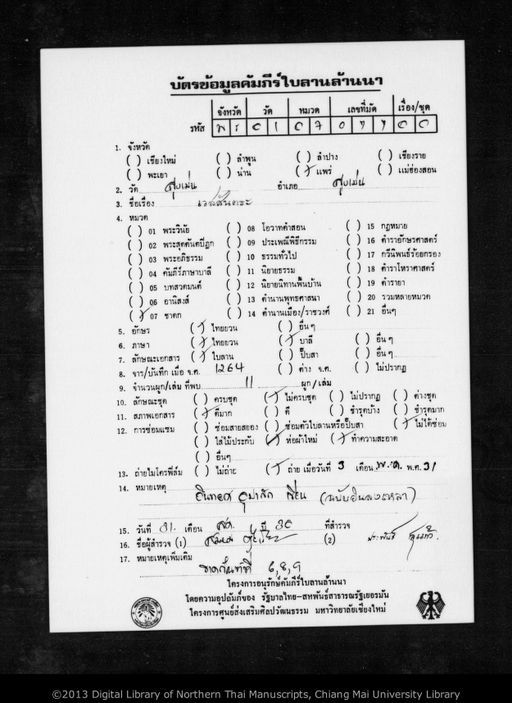 บัตรข้อมูลคัมภีร์ใบลานล้านนา
จังหวัด วัด หมวด เลขที่มัด เรื่อง/ชุด
รหัส
1. จังหวัด
( ) เชียงใหม่ ( ) ลำพูน ( ) ลำปาง ( ) เชียงราย
( ) พะเยา ( ) น่าน (/) แพร่ ( ) แม่ฮ่องสอน
2. วัด สูงเม่น อำเภอ สูงเม่น
3. ชื่อเรื่อง เวสสันตระ
4. หมวด
( ) 01 พระวินัย ( ) 08 โอวาทคำสอน ( ) 15 กฎหมาย
( ) 02 พระสุตตันตปิฎก ( ) 09 ประเพณีพิธีกรรม ( ) 16 ตำราอักษรศาสตร์
( ) 03 พระอภิธรรม ( ) 10 ธรรมทั่วไป ( ) 17 กวีนิพนธ์ร้อยกรอง
( ) 04 คัมภีร์ภาษาบาลี ( ) 11 นิยายธรรม ( ) 18 ตำราโหราศาสตร์
( ) 05 บทสวดมนต์ ( ) 12 นิยายนิทานพื้นบ้าน ( ) 19 ตำรายา
( ) 06 อานิสงส์ ( ) 13 ตำนานพุทธศาสนา ( ) 20 รวมหลายหมวด
(/) 07 ชาดก ( ) 14 ตำนานเมือง/ราชวงศ์ ( ) 21 อื่นๆ
5. อักษร (/) ไทยยวน ( ) อื่นๆ
6. ภาษา (/) ไทยยวน (/) บาลี ( ) อื่นๆ
7. ลักษณะเอกสาร (/) ใบลาน ( ) ปั๊บสา ( ) อื่นๆ
8. จาร/บันทึก เมื่อ จ.ศ. 1264 ( ) ค่าง จ.ศ. ( ) ไม่ปรากฏ
9. จำนวนผูก/เล่ม ที่พบ 11 ผูก/เล่ม
10. ลักษณะชุด ( ) ครบชุด (/) ไม่ครบชุด ( ) ไม่ปรากฏ ( ) ต่างชุด
11. สภาพเอกสาร (/) ดีมาก ( ) ดี ( ) ชำรุดบ้าง ( ) ชำรุดมาก
12. การซ่อมแซม ( ) ซ่อมสายสยอง ( ) ซ่อมตัวใบลานหรือปั๊บสา (/) ไม่ได้ซ่อม
( ) ใส่ไม้ประกับ (/) ห่อผ้าใหม่ (/) ทำความสะอาด
( ) อื่นๆ
13. ถ่ายไมโครฟิล์ม ( ) ไม่ถ่าย (/) ถ่าย เมื่อวันที่ 3 เดือน พ.ค. พ.ศ. 31
14. หมายเหตุ
15. วันที่ 31 เดือน ปี 30 ที่สำรวจ
16. ชื่อผู้สำรวจ (1) (2)
17. หมายเหตุเพิ่มเติม
6,8,9
โครงการอนุรักษ์คัมภีร์ใบลานล้านนา
โดยความอุปถัมภ์ของ รัฐบาลไทย-สหพันธ์สาธารณรัฐเยอรมัน
โครงการศูนย์ส่งเสริมศิลปวัฒนธรรม มหาวิทยาลัยเชียงใหม่
©2013 Digital Library of Northern Thai Manuscripts, Chiang Mai University Library